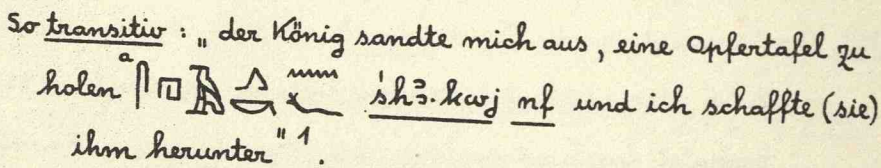 So transitiv : „ der König sandte mich aus, eine Opfertafel zu
holen ᵃ 𓋴𓉔𓄿𓂻𓎡 𓈖𓆑 śhꜣ.kwj nf und ich schaffte (sie)
ihm herunter" ¹.